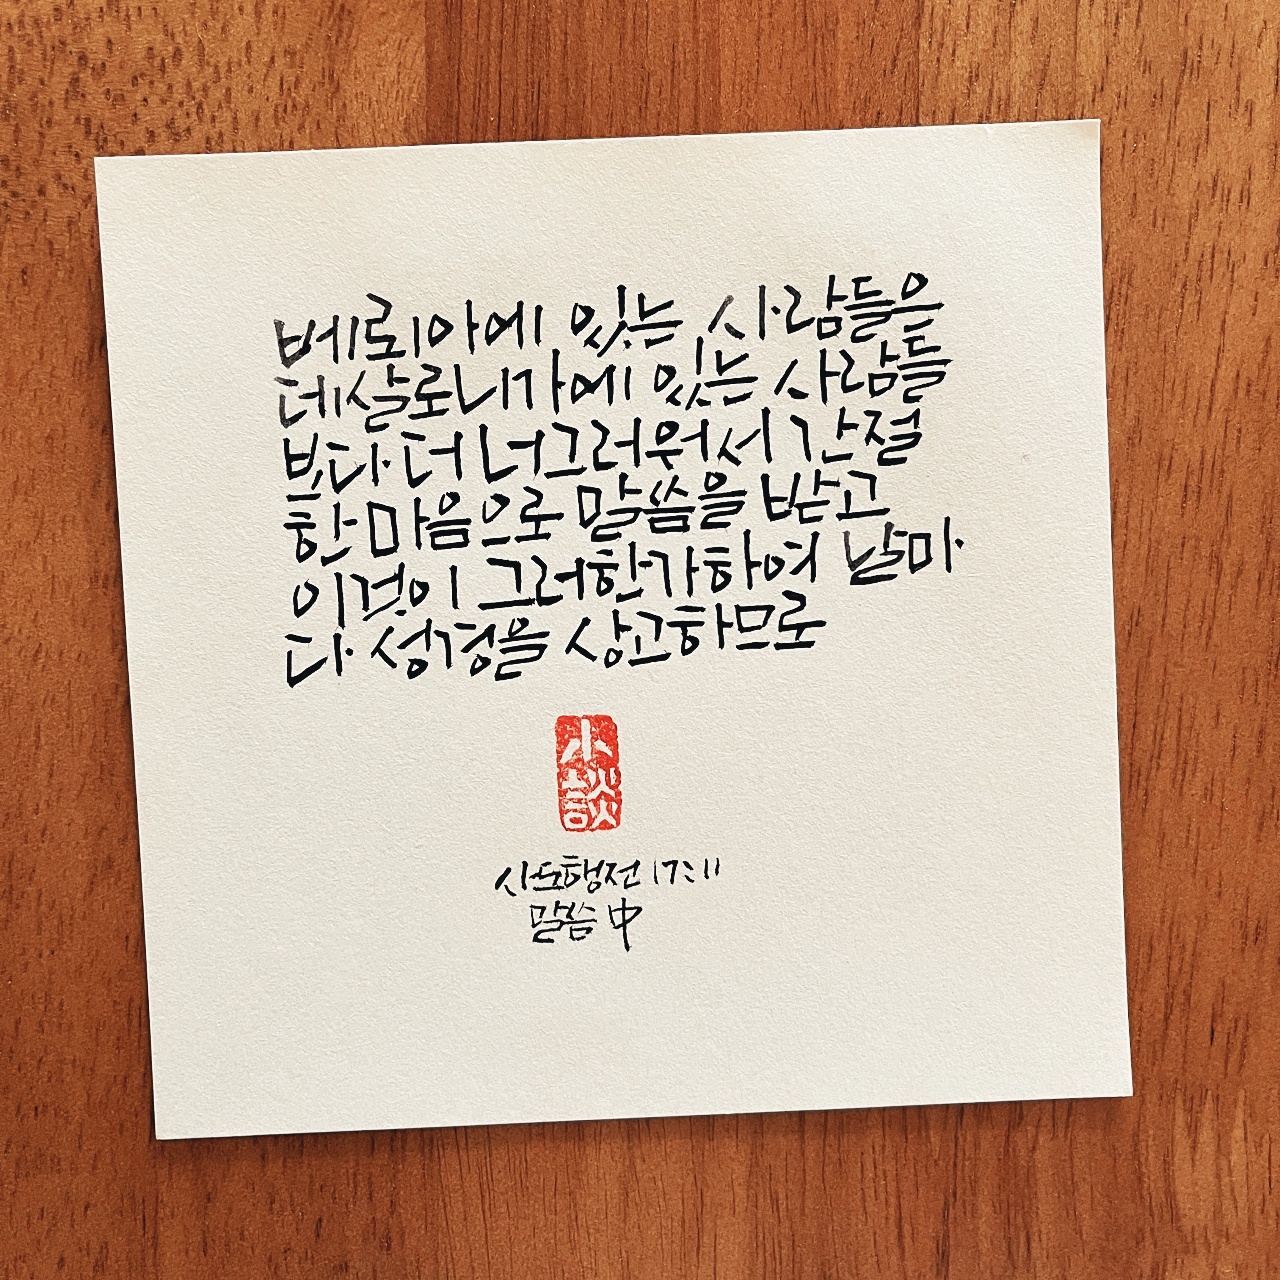 베뢰아에 있는 사람들은
데살로니가에 있는 사람들
보다 더 너그러워서 간절
한 마음으로 말씀을 받고
이것이 그러한가하여 날마
다 성경을 상고하므로
小
談
사도행전 17:11
말씀 中